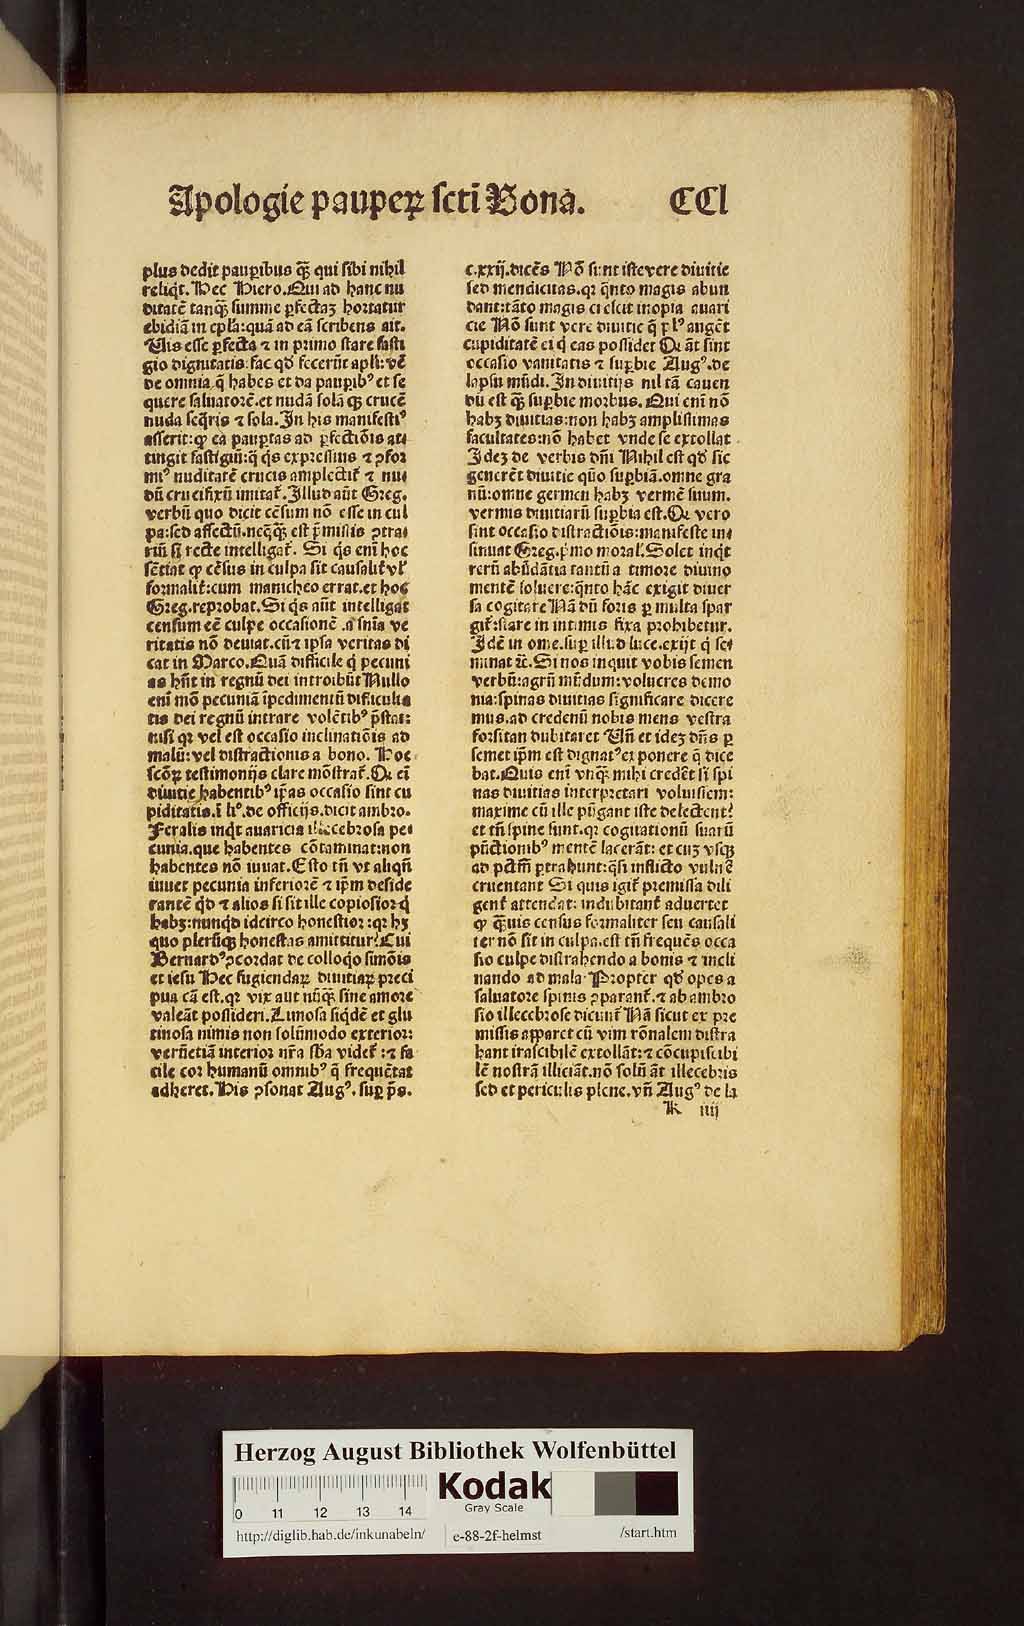 Apologie pauperꝝ scti Bona. CCl
plus dedit paupibus ꝙ̃ qui sibi nihil
reliqt. Hec Hiero. Qui ad hanc nu
ditatẽ tanꝙ̃ summe pfectaʒ hortatur
ebidiã in epla: quã ad eã scribens ait.
Uis esse pfecta ⁊ in primo stare fasti
gio dignitatis: fac qd fecerũt apli: vẽ
de omnia q̃ habes et da paupib⁹ et se
quere saluatorẽ. et nudã solã qꝫ crucẽ
nuda seq̃ris ⁊ sola. In his manifesti⁹
asserit: ꝙ ea pauptas ad pfectiõis at⸗
tingit fastigiũ: q̃ q̃s expressius ⁊ ꝯfor
mi⁹ nuditatẽ crucis amplectit̃ ⁊ nu⸗
dũ crucifixũ imitat̃. Illud aũt Greg.
verbũ quo dicit cẽsum nõ esse in cul
pa: sed affectũ. neqꝙ̃ est p̃missis ꝯtra⸗
riũ si recte intelligat̃. Si q̃s eni hoc
sẽtiat ꝙ cẽsus in culpa sit causalit̃ vl̃
formalit̃: cum manicheo errat. et hoc
Greg. reprobat. Si q̃s aũt intelligat
censum eẽ culpe occasionẽ .a snĩa ve
ritatis nõ deuiat. cũ ⁊ ipsa veritas di
cat in Marco. Quã difficile q̃ pecuni
as hñt in regnũ dei introibũt Nullo
eni mõ pecuniã ipedimentũ difficulta
tis dei regnũ intrare volẽtib⁹ p̃stat:
nisi qr vel est occasio inclinatiõis ad
malũ: vel distractionis a bono. Hoc
scõꝝ testimonijs clare mõstrat̃. Qꝫ eĩ
diuitie habentib⁹ ipas occasio sint cu
piditatis. ĩ li⁰. de officijs. dicit ambro.
Feralis inqt auaricia illecebrosa pe⸗
cunia. que habentes cõtaminat: non
habentes nõ iuuat. Esto tñ vt aliqñ
iuuet pecunia inferiorẽ ⁊ ipm deside
rantẽ qd ⁊ alios si sit ille copiosior q̃
habʒ: nunqd idcirco honestior: qr hʒ
quo plerũqꝫ honestas amittitur? Cui
Bernard⁹ ꝯcordat de colloqo simõis
et iesu Hec fugiendaꝝ diuitiaꝝ preci
pua cã est. qr vix aut nũꝙ̃ sine amore
valeãt possideri. Limosa siqdẽ et glu
tinosa nimis non solũmodo exterior:
verũetiã interior nr̃a sba videt̃: ⁊ fa
cile cor humanũ omnib⁹ q̃ frequẽtat
adheret. His ꝯsonat Aug⁹. sup p̃s.
c.xxij. dicẽs Nõ sunt iste vere diuitie
sed mendicitas. qr q̃nto magis abun
dant: tãto magis crescit inopia auari
cie Nõ sunt vere diuitie q̃ p l⁹ augẽt
cupiditatẽ ei q̃ eas possidet Qꝫ aũt sint
occasio vanitatis ⁊ supbie Aug⁹. de
lapsu mũdi. In diuitijs nil tã cauen
dũ est ꝙ̃ supbie morbus. Qui eni nõ
habʒ diuitias: non habʒ amplissimas
facultates: nõ habet vnde se extollat
Ideʒ de verbis dñi Nihil est qd sic
generẽt diuitie quõ supbiã. omne gra
nũ: omne germen habʒ vermẽ suum.
vermis diuitiarũ supbia est. Qꝫ vero
sint occasio distractiõis: manifeste in⸗
sinuat Greg. p̃mo moral. Solet inqt
rerũ abũdãtia tantũ a timore diuino
mentẽ soluere: q̃nto hãc exigit diuer
sa cogitare Nã dũ foris p multa spar
git̃: stare in intimis fixa prohibetur.
Idẽ in ome. sup illud luce. exijt q̃ se⸗
minat ⁊c̃. Si nos inquit vobis semen
verbũ: agrũ mũdum: volucres demo
nia: spinas diuitias significare dicere
mus. ad credenũ nobis mens vestra
forsitan dubitaret Uñ et ideʒ dñs p
semet ipm est dignat⁹ exponere q̃ dice
bat. Quis eni vnqꝫ mihi credẽt si spi
nas diuitias interpretari voluissem:
maxime cũ ille pũgant iste delectent?
et tñ spine sunt. qr cogitationũ suarũ
pũctionib⁹ mentẽ lacerãt: et cuʒ vsqꝫ
ad pctm ptrahunt: q̃si inflicto vulnẽ
cruentant Si quis igit̃ premissa dili
gent̃ attendat: indubitant̃ aduertet
ꝙ ꝙ̃uis census formaliter seu causali
ter nõ sit in culpa. est tñ frequẽs occa
sio culpe distrahendo a bonis ⁊ incli
nando ad mala. Propter qd opes a
saluatore spinis ꝯparant̃. ⁊ ab ambro
sio illecebrose dicunt̃ Nã sicut ex pre
missis apparet cũ vim rõnalem distra
hant irascibilẽ extollãt: ⁊ cõcupiscibi
lẽ nostrã illiciãt. nõ solũ ãt illecebris
sed et periculis plene. vñ Aug⁹ de la
K iiij
Herzog August Bibliothek Wolfenbüttel
Kodak
Gray Scale
0 11 12 13 14
http://diglib.hab.de/inkunabeln/ e-88-2f-helmst /start.htm